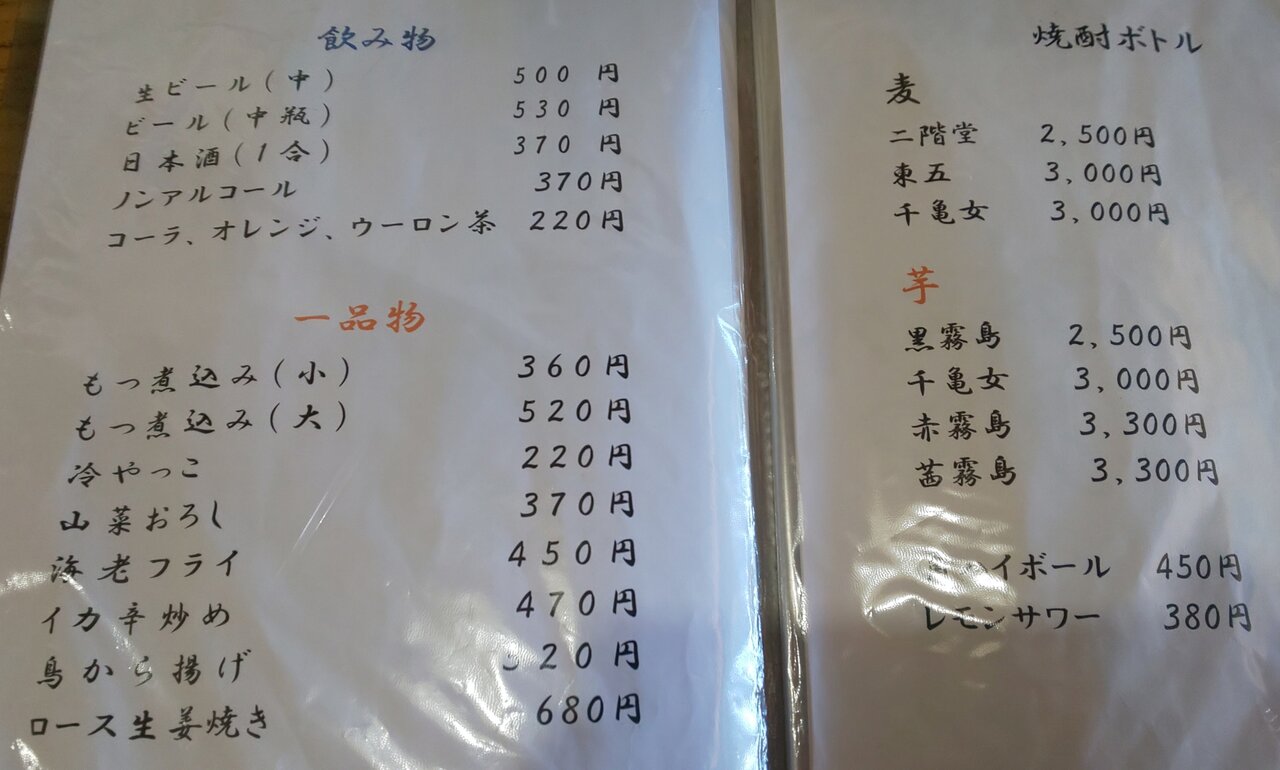 飲み物
生ビール(中) 500円
ビール(中瓶) 530円
日本酒(1合) 370円
ノンアルコール 370円
コーラ、オレンジ、ウーロン茶 220円
一品物
もつ煮込み(小) 360円
もつ煮込み(大) 520円
冷やっこ 220円
山菜おろし 370円
海老フライ 450円
イカ辛炒め 470円
鳥から揚げ
ロース生姜焼き 680円
焼酎ボトル
麦
二階堂 2,500円
東五 3,000円
千亀女 3,000円
芋
黒霧島 2,500円
千亀女 3,000円
赤霧島 3,300円
茜霧島 3,300円
イボール 450円
レモンサワー 380円